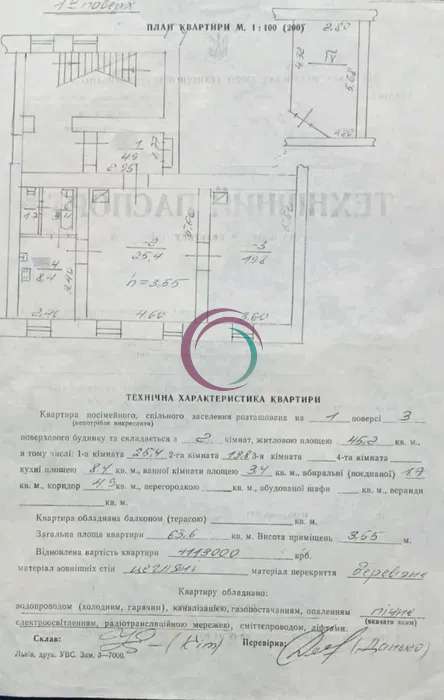 1й поверх
ПЛАН КВАРТИРИ М. 1:100 (200)
2.80
IV
4.92
5.68
1
4.9
2.95
1.7
3.4
4
8.4
3.40
2
25,4
5.60
h=3.55
3
19.8
2.40
4.60
3.60
ТЕХНІЧНА ХАРАКТЕРИСТИКА КВАРТИРИ
Квартира посімейного, спільного заселення розташована на 1 поверсі 3
(непотрібне викреслити)
поверхового будинку та складається з 2 кімнат, житловою площею 45,2 кв. м.,
в тому числі: 1-а кімната 25,4 2-га кімната 19.8 3-я кімната 4-та кімната
кухні площею 8.4 кв. м., ванної кімнати площею 3.4 кв. м., вбиральні (поєднаної) 1.7
кв. м., коридор 4.9 кв. м., перегородкою кв. м., вбудованої шафи кв. м., веранди
кв. м.
Квартира обладнана балконом (терасою) кв. м.
Загальна площа квартири 63,6 кв. м. Висота приміщень 3.55 м.
Відновлена вартість квартири крб.
матеріал зовнішніх стін цегляні матеріал перекриття деревяне
Квартиру обладнано:
водопроводом (холодним, гарячим), каналізацією, газопостачанням, опаленням пічне
(вказати яким)
електроосвітленням, радіотрансляційною мережею, сміттєпроводом, ліфтами.
Склав: Перевірив:
Львів, друк. УВС. Зам. 3—7000.